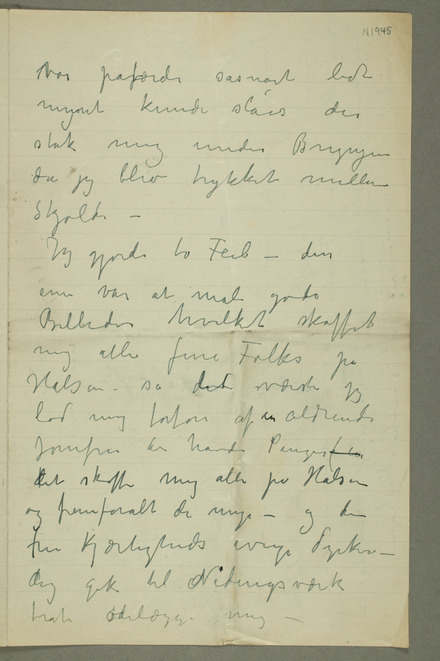 N1945
var paafærde saasnart
mynt kunde slåes der
stak mig under Bryggen
da jeg blev trykket mellem
Skjolde –
Jeg gjorde to Feil – den
ene var at male gode
Billeder hvilket skaffet
mig alle fine Folks på
Halsen – så det værste jeg
lod mig forføre af en aldrende
Jomfru der havde Penge
det skaffte mig alle på Halsen
og fremforalt de unge – og den
frie Kjærligheds ivrige Dyrkere –
gik til Nidingsværk
ødelægge mig –